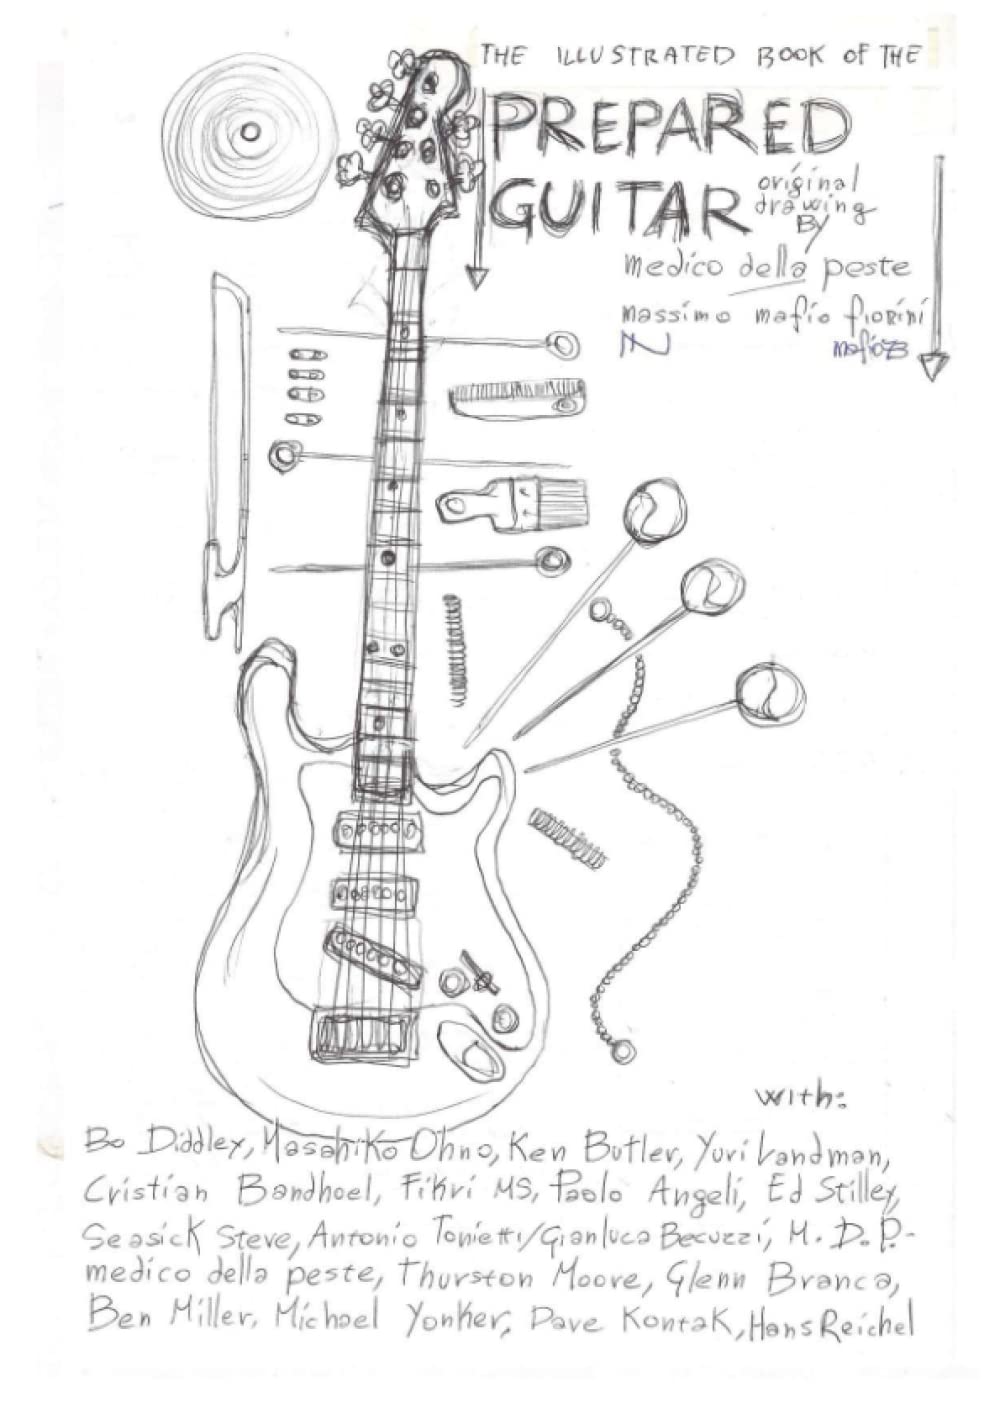 THE ILLUSTRATED BOOK OF THE
PREPARED
GUITAR
original
drawing
By
medico della peste
massimo mafio fiorini
with:
Bo Diddley, Masahiko Ohno, Ken Butler, Yuri Landman,
Cristian Bandhoel, Fikri MS, Paolo Angeli, Ed Stilley,
Seasick Steve, Antonio Tonietti/Gianluca Becuzzi, M. D. P.-
medico della peste, Thurston Moore, Glenn Branca,
Ben Miller, Michael Yonker, Dave Kontak, Hans Reichel